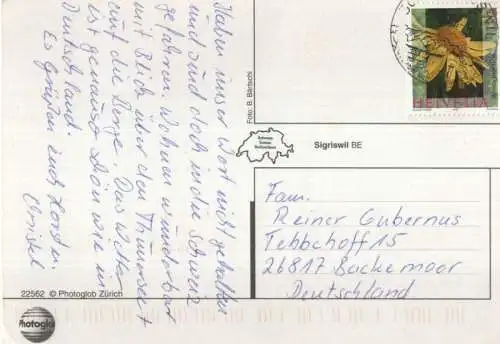 Haben unser Wort nicht gehalten
und sind doch in die Schweiz
gefahren. Wohnen wunderbar
mit Blick über den Thunersee +
auf die Berge. Das Wetter
ist genauso schön wie in
Deutschland.
Es grüßen Euch Horst u.
Christel
22562 © Photoglob Zürich
Photoglob
Foto: B. Bärtschi
Sigriswil BE
HELVETIA
Fam.
Reiner Gubernus
Tebbchoff 15
26817 Backemoor
Deutschland